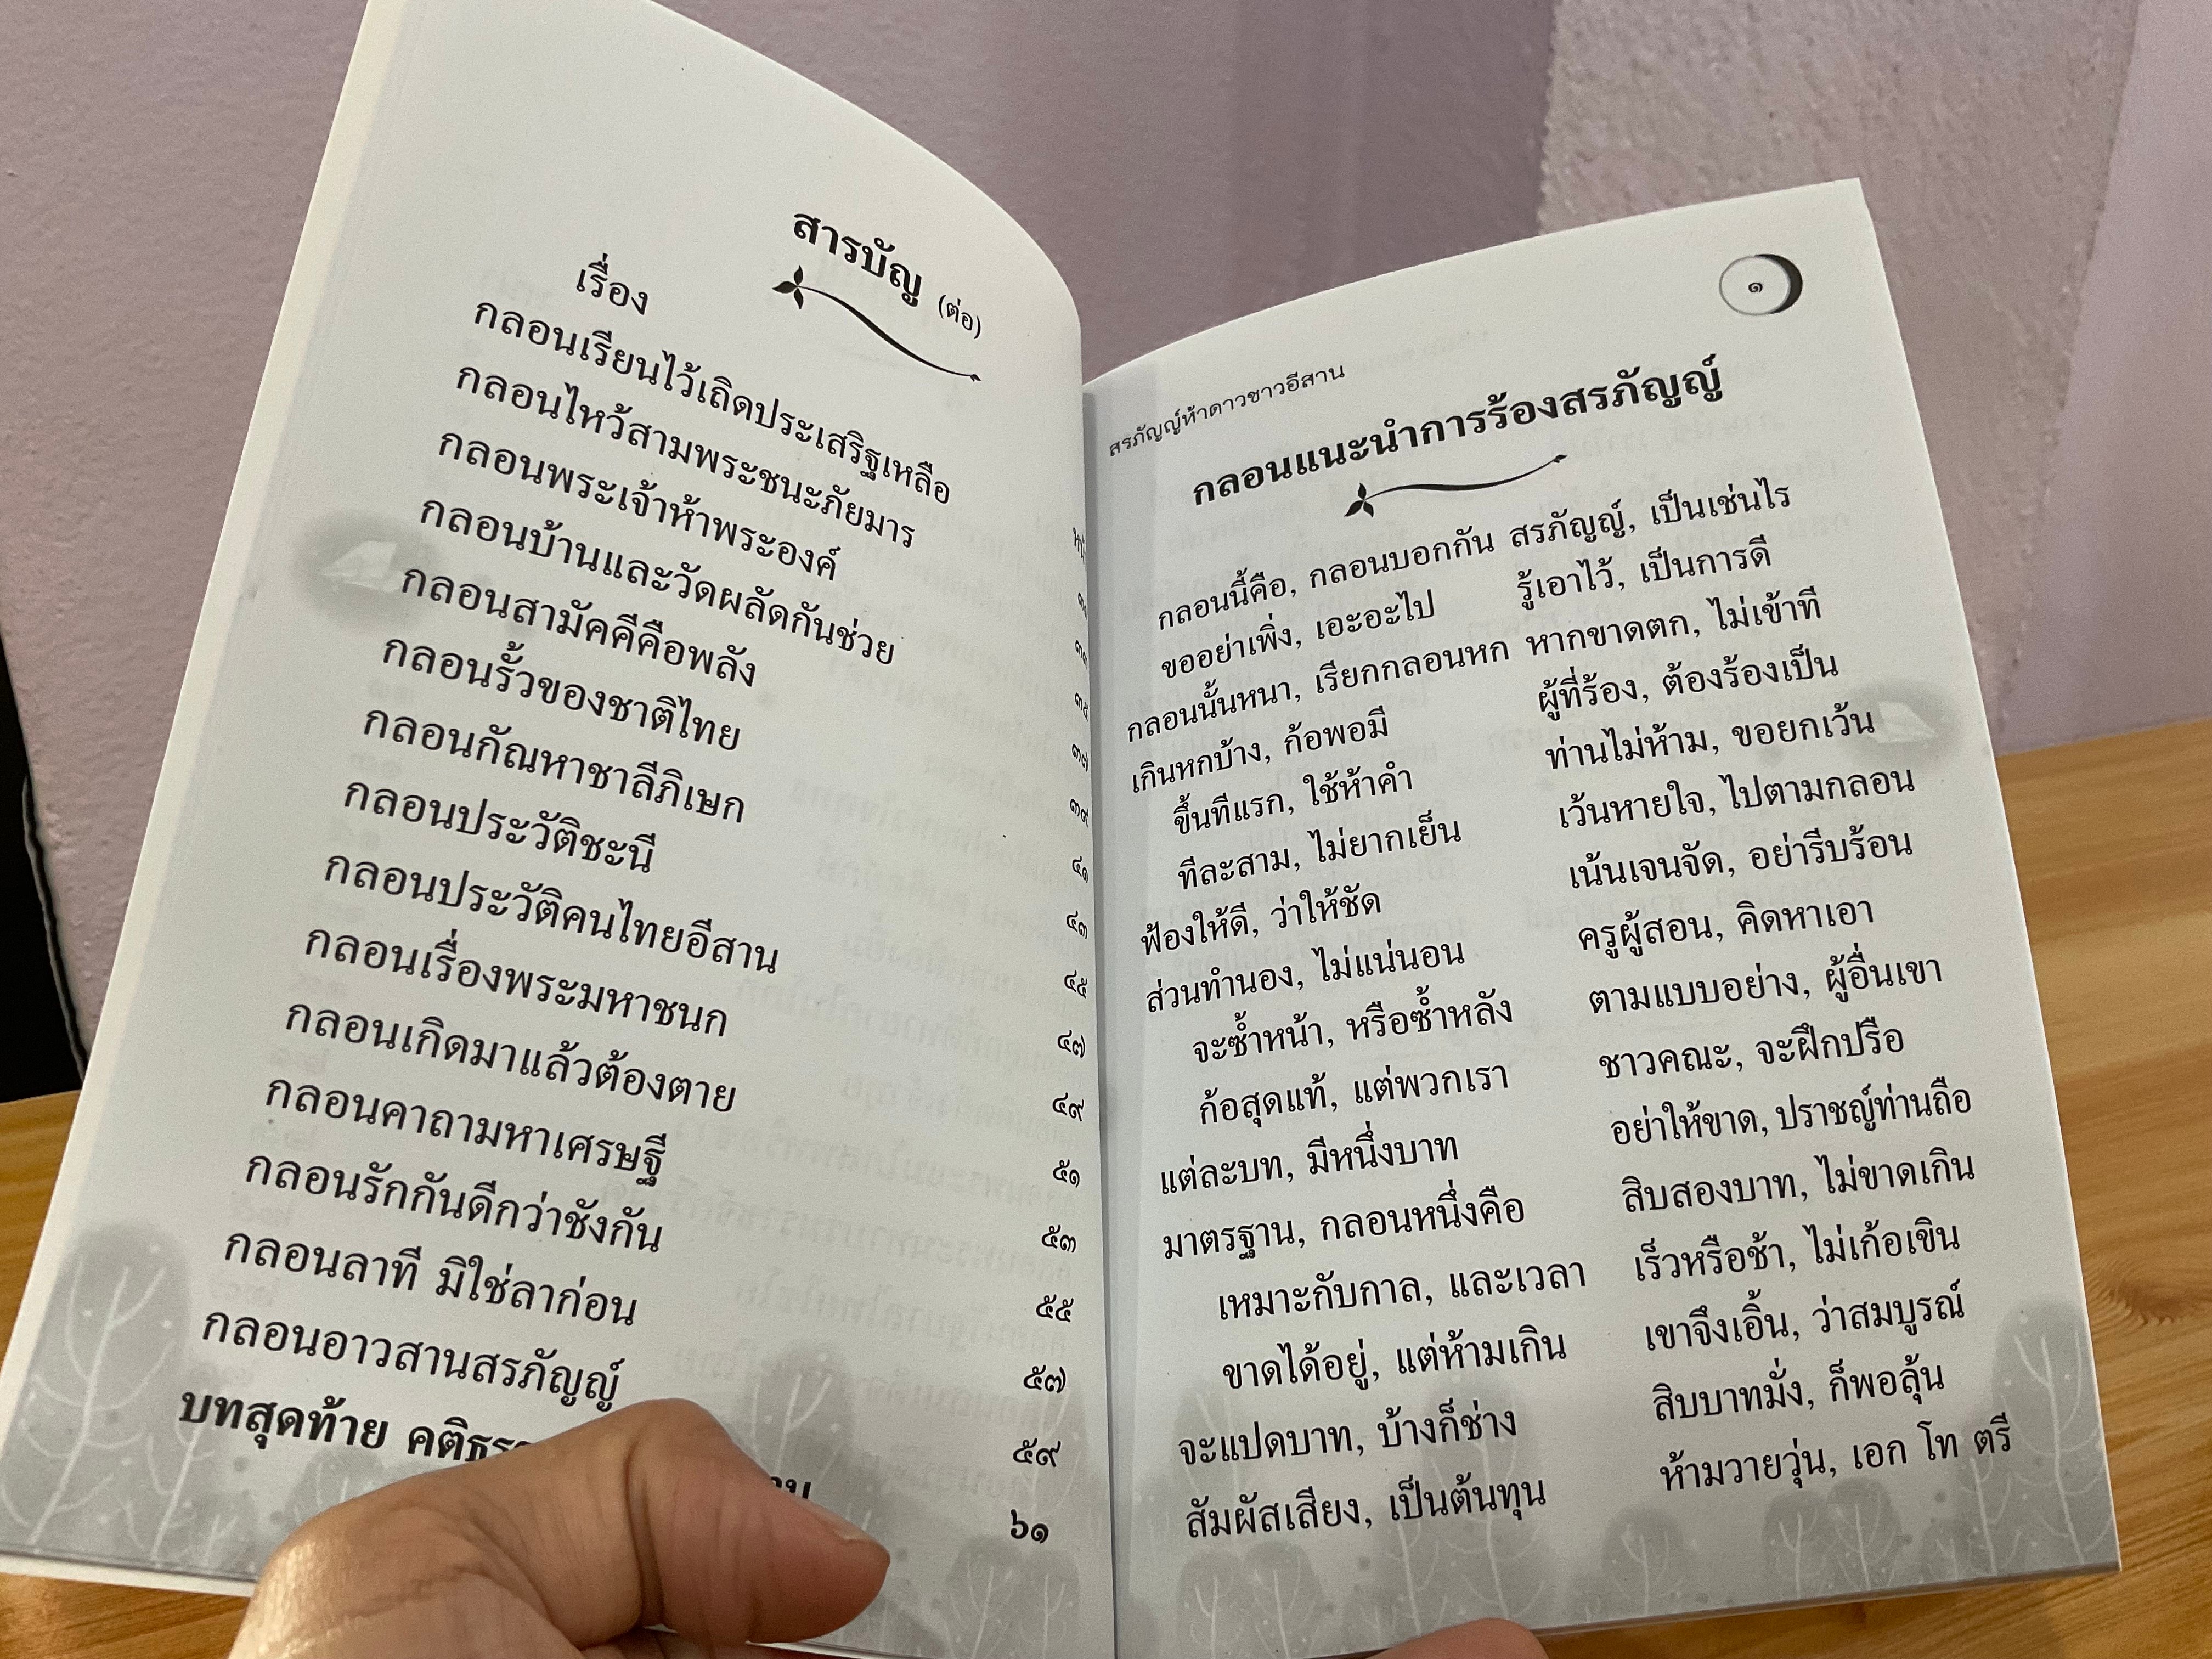 สารบัญ (ต่อ)
เรื่อง
กลอนเรียนไว้เถิดประเสริฐเหลือ
กลอนไหว้สามพระชนะภัยมาร ๓๓
กลอนพระเจ้าห้าพระองค์ ๓๕
กลอนบ้านและวัดผลัดกันช่วย ๓๗
กลอนสามัคคีคือพลัง ๓๙
กลอนรั้วของชาติไทย ๔๑
กลอนกัณหาชาลีภิเษก ๔๓
กลอนประวัติชะนี ๔๕
กลอนประวัติคนไทยอีสาน ๔๗
กลอนเรื่องพระมหาชนก ๔๙
กลอนเกิดมาแล้วต้องตาย ๕๑
กลอนคาถามหาเศรษฐี ๕๓
กลอนรักกันดีกว่าชังกัน ๕๕
กลอนลาที มิใช่ลาก่อน ๕๗
กลอนอาวสานสรภัญญ์ ๕๙
บทสุดท้าย ๖๑
๑
สรภัญญ์ห้าดาวชาวอีสาน
กลอนแนะนำการร้องสรภัญญ์
กลอนนี้คือ, กลอนบอกกัน สรภัญญ์, เป็นเช่นไร
ขออย่าเพิ่ง, เอะอะไป รู้เอาไว้, เป็นการดี
กลอนนั้นหนา, เรียกกลอนหก หากขาดตก, ไม่เข้าที
เกินหกบ้าง, ก้อพอมี ผู้ที่ร้อง, ต้องร้องเป็น
ขึ้นทีแรก, ใช้ห้าคำ ท่านไม่ห้าม, ขอยกเว้น
ทีละสาม, ไม่ยากเย็น เว้นหายใจ, ไปตามกลอน
ฟ้องให้ดี, ว่าให้ชัด เน้นเจนจัด, อย่ารีบร้อน
ส่วนทำนอง, ไม่แน่นอน ครูผู้สอน, คิดหาเอา
จะซ้ำหน้า, หรือซ้ำหลัง ตามแบบอย่าง, ผู้อื่นเขา
ก้อสุดแท้, แต่พวกเรา ชาวคณะ, จะฝึกปรือ
แต่ละบท, มีหนึ่งบาท อย่าให้ขาด, ปราชญ์ท่านถือ
มาตรฐาน, กลอนหนึ่งคือ สิบสองบาท, ไม่ขาดเกิน
เหมาะกับกาล, และเวลา เร็วหรือช้า, ไม่เก้อเขิน
ขาดได้อยู่, แต่ห้ามเกิน เขาจึงเอิ้น, ว่าสมบูรณ์
จะแปดบาท, บ้างก็ช่าง สิบบาทมั่ง, ก็พอลุ้น
สัมผัสเสียง, เป็นต้นทุน ห้ามวายวุ่น, เอก โท ตรี